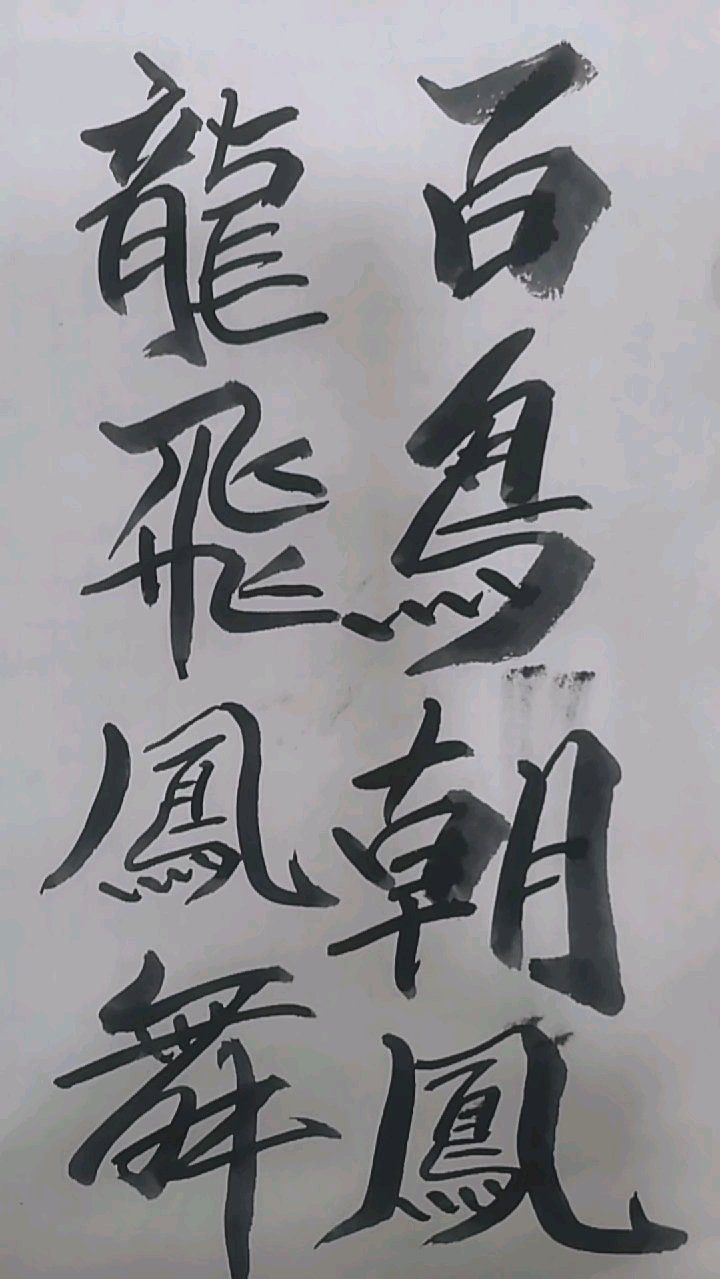 百鳥朝鳳
龍飛鳳舞